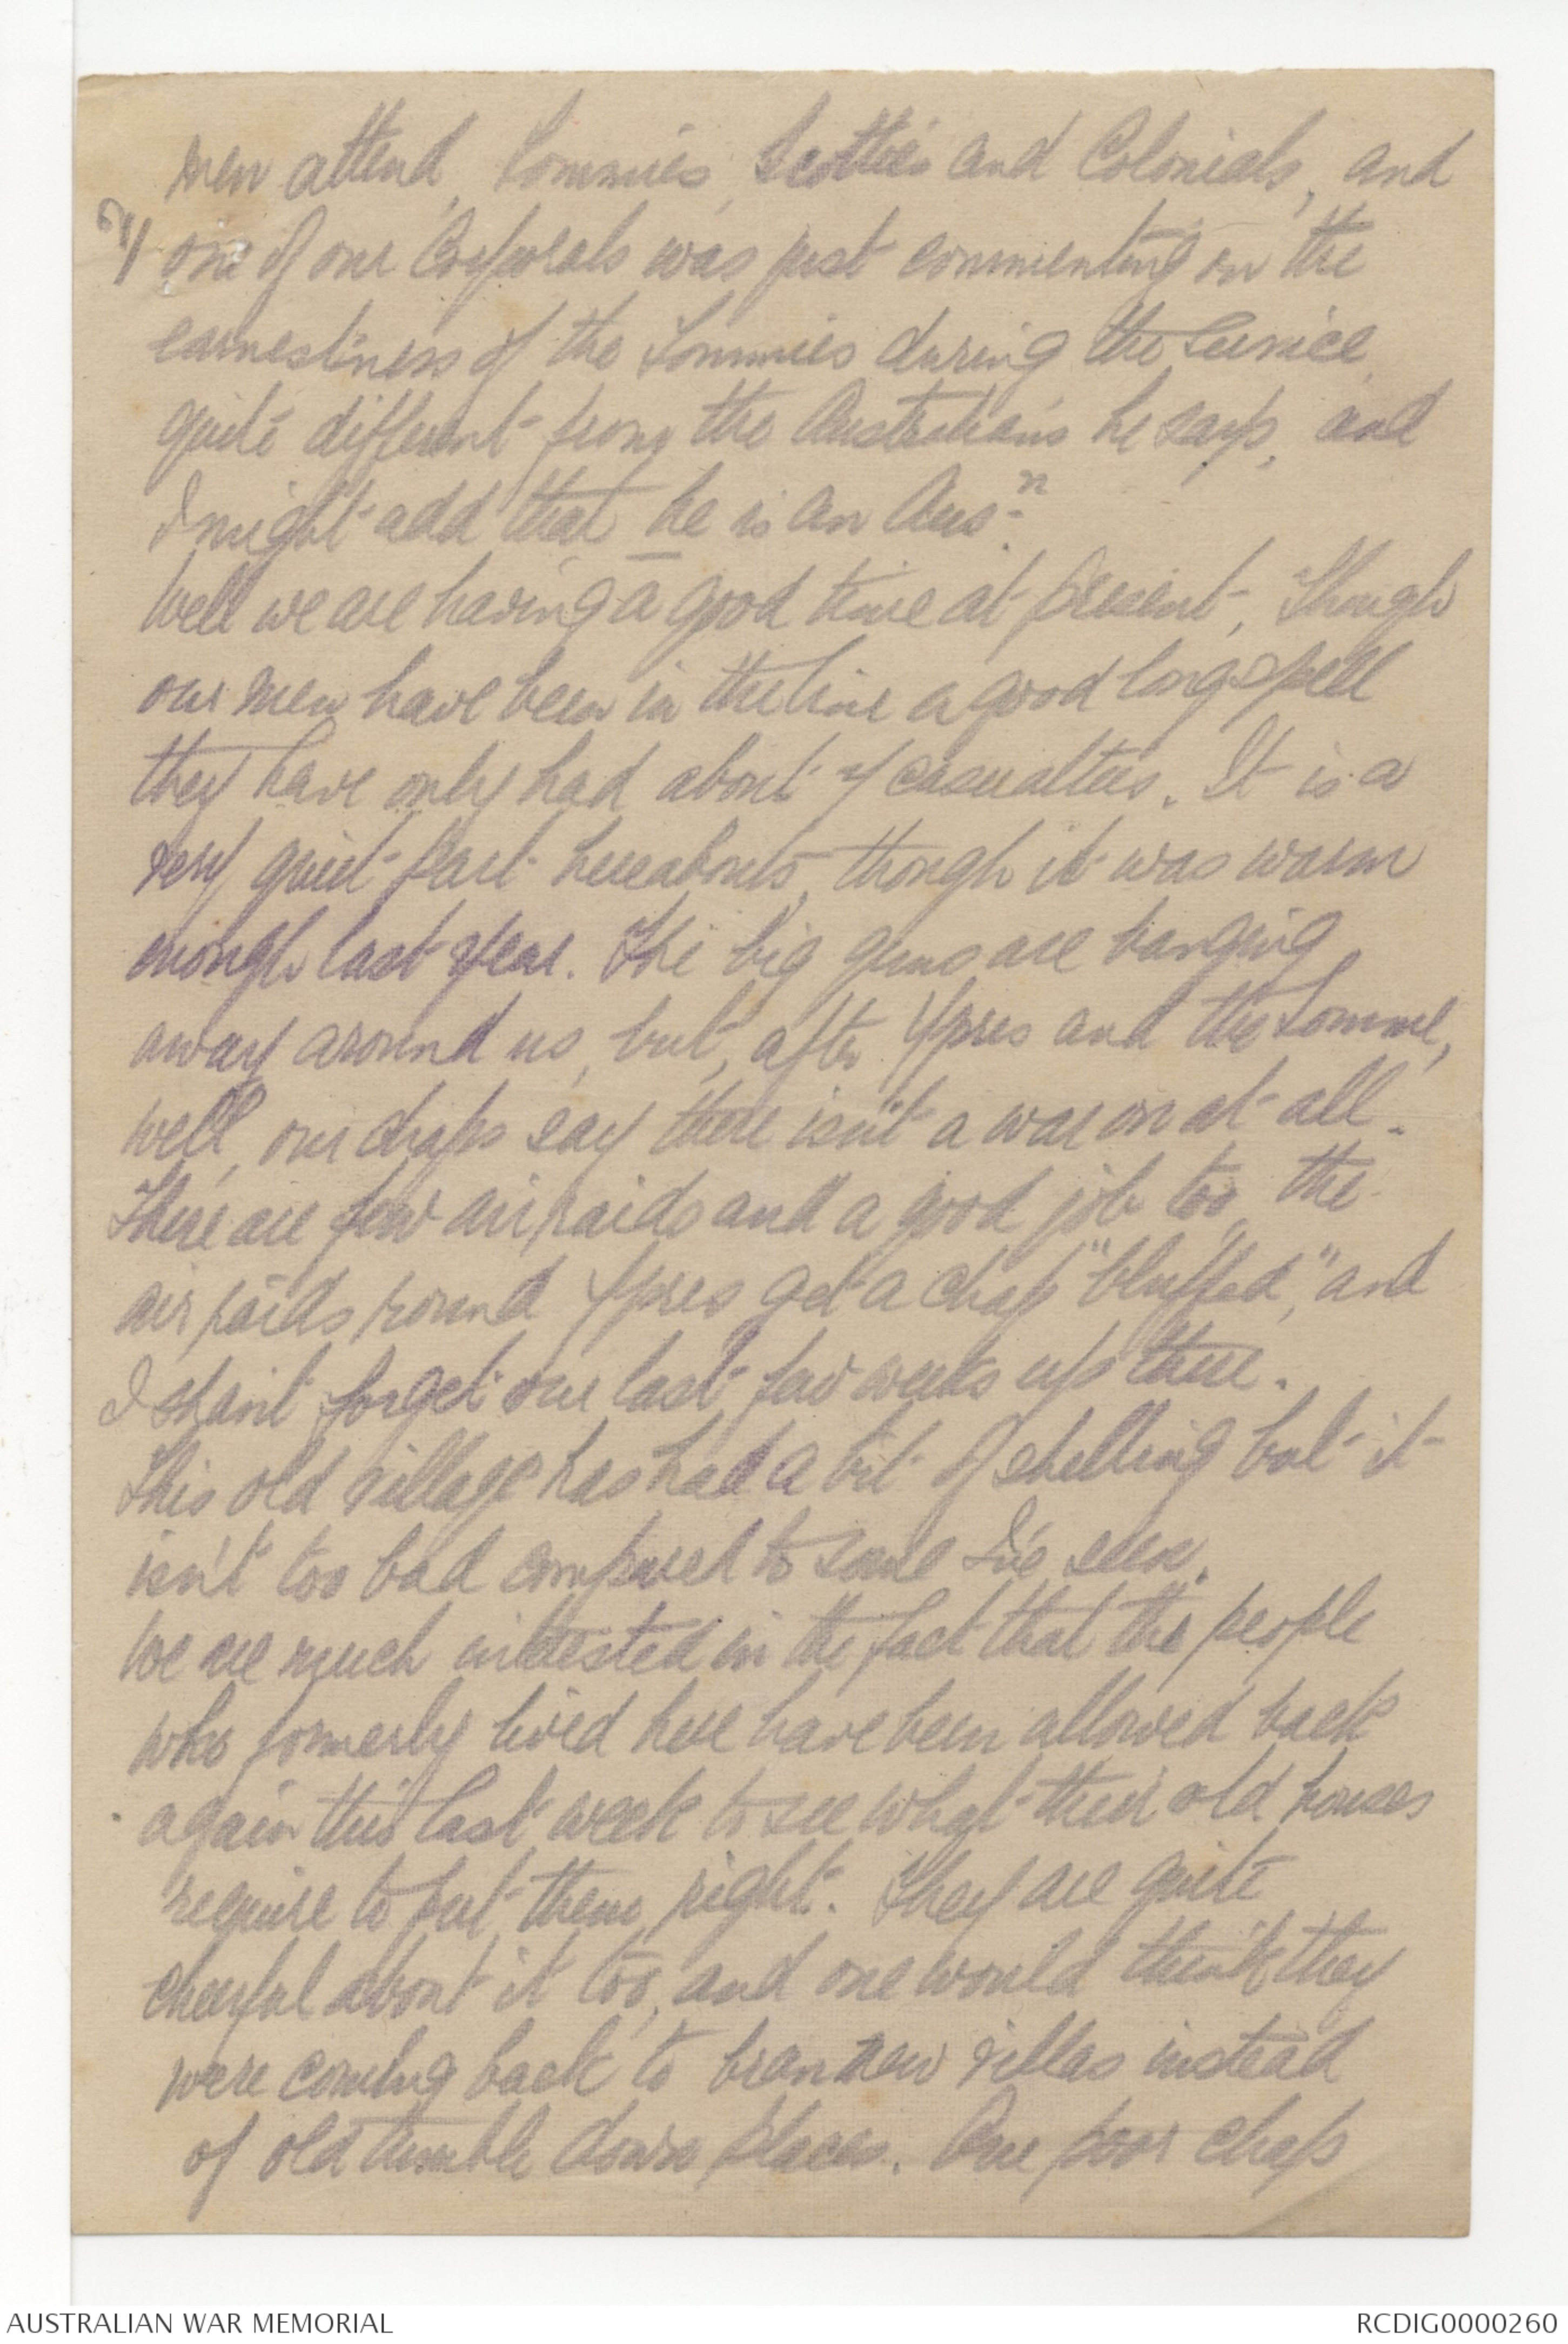 men attend, Tommies, Scotties and Colonials, and
one of our Corporals was just commenting on the
earnestness of the Tommies during the Service,
quite different from the Australians he says, and
I might add that he is an Ausn.
Well we are having a good time at present, Though
our men have been in the line a good long spell
they have only had about casualties. It is a
very quiet part hereabouts, though it was warm
enough last year. The big guns are banging
away around us, but, after Ypres and the Somme,
well, our chaps say there isn't a war on at all.
There are few air raids and a good job too, the
air raids round Ypres get a chap "bluffed", and
I shan't forget our last few weeks up there.
This old village has had a bit of shelling but it
isn't too bad compared to some I've seen.
We are much interested in the fact that the people
who formerly lived here have been allowed back
again this last week to see what their old houses
require to put them right. They are quite
cheerful about it too, and one would think they
were coming back to bran new villas instead
of old tumble down places. One poor chap
AUSTRALIAN WAR MEMORIAL
RCDIG0000260